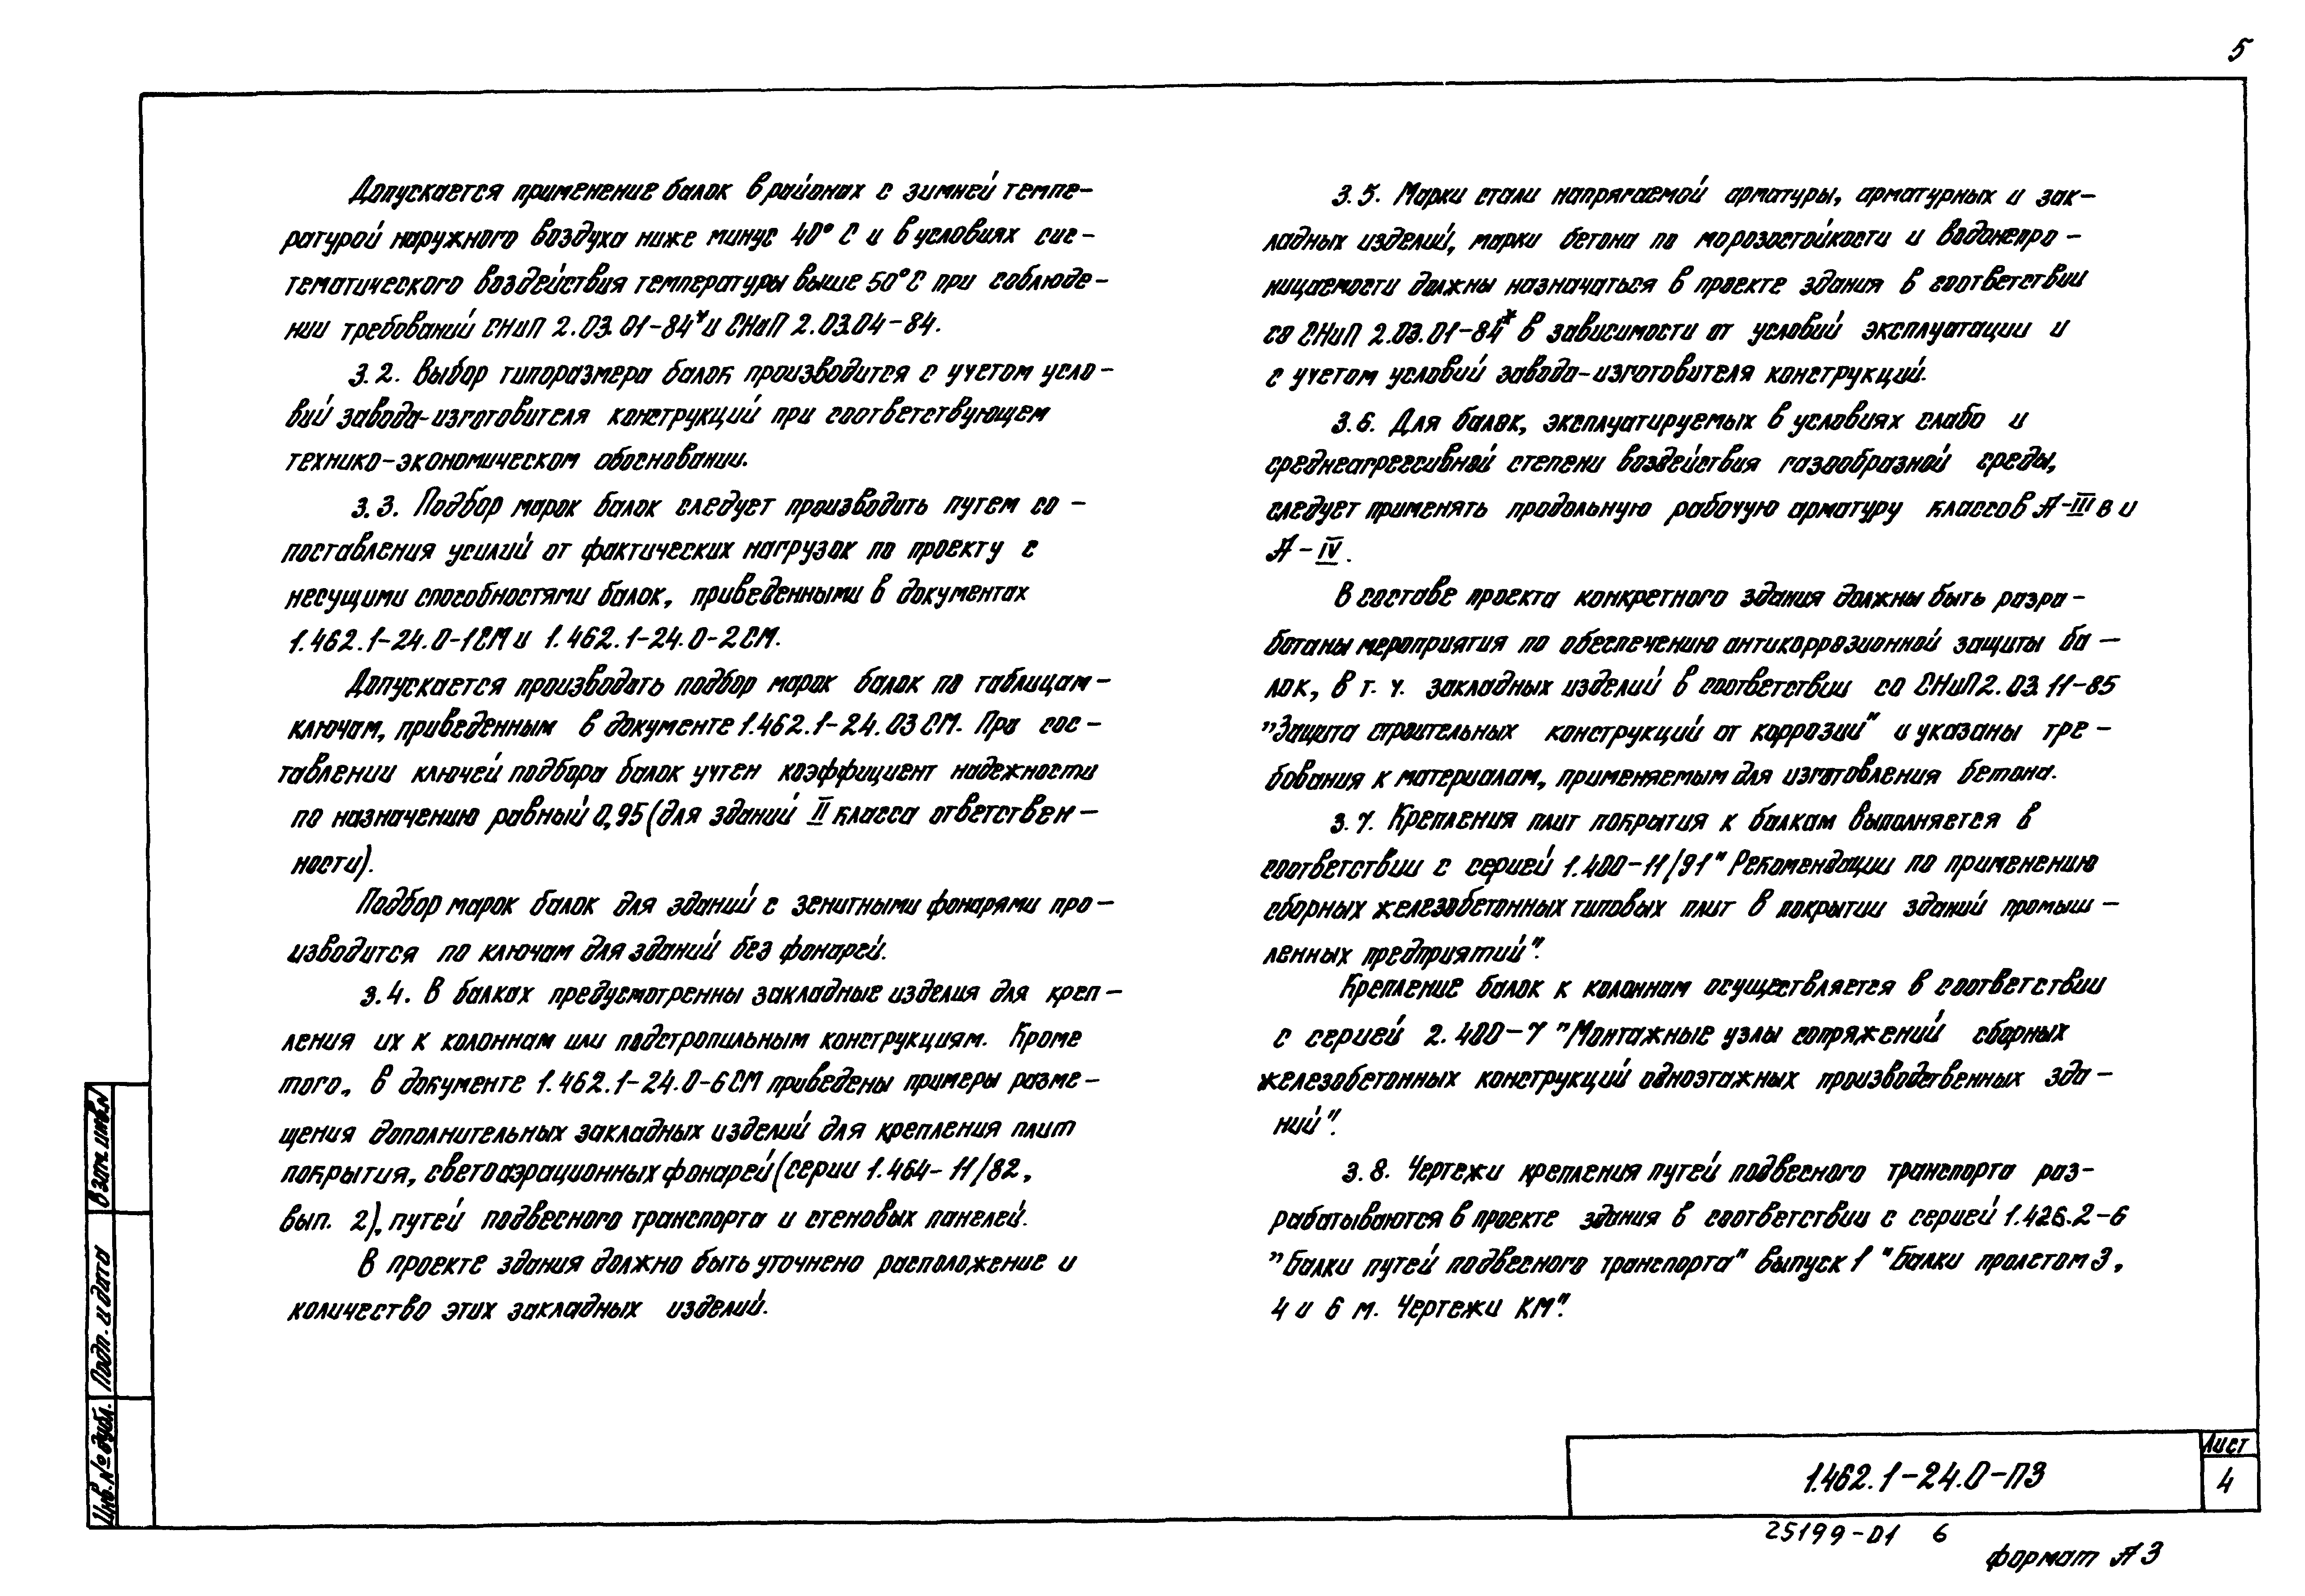 5
Допускается применение балок в районах с зимней темпе-
ратурой наружного воздуха ниже минус 40° С и в условиях сис-
тематического воздействия температуры выше 50°С при соблюде-
нии требований СНиП 2.03.01-84* и СНиП 2.03.04-84.
3.2. Выбор типоразмера балок производится с учетом усло-
вий завода-изготовителя конструкций при соответствующем
технико-экономическом обосновании.
3.3. Подбор марок балок следует производить путем со-
поставления усилий от фактических нагрузок по проекту с
несущими способностями балок, приведенными в документах
1.462.1-24.0-1СМ и 1.462.1-24.0-2СМ.
Допускается производить подбор марок балок по таблицам-
ключам, приведенным в документе 1.462.1-24.03СМ. При сос-
тавлении ключей подбора балок учтен коэффициент надежности
по назначению равный 0,95 (для зданий II класса ответствен-
ности).
Подбор марок балок для зданий с зенитными фонарями про-
изводится по ключам для зданий без фонарей.
3.4. В балках предусмотренны закладные изделия для креп-
ления их к колоннам или подстропильным конструкциям. Кроме
того, в документе 1.462.1-24.0-6СМ приведены примеры разме-
щения дополнительных закладных изделий для крепления плит
покрытия, светоаэрационных фонарей (серии 1.464-11/82,
вып. 2), путей подвесного транспорта и стеновых панелей.
В проекте здания должно быть уточнено расположение и
количество этих закладных изделий.
3.5. Марки стали напрягаемой арматуры, арматурных и зак-
ладных изделий, марки бетона по морозостойкости и водонепро-
ницаемости должны назначаться в проекте здания в соответствии
со СНиП 2.03.01-84* в зависимости от условий эксплуатации и
с учетом условий завода-изготовителя конструкций.
3.6. Для балок, эксплуатируемых в условиях слабо и
среднеагрессивной степени воздействия газообразной среды,
следует применять продольную рабочую арматуру классов А-III в и
А-IV.
В составе проекта конкретного здания должны быть разра-
ботаны мероприятия по обеспечению антикоррозионной защиты ба-
лок, в т. ч. закладных изделий в соответствии со СНиП 2.03.11-85
"Защита строительных конструкций от коррозий" и указаны тре-
бования к материалам, применяемым для изготовления бетона.
3.7. Крепления плит покрытия к балкам выполняется в
соответствии с серией 1.400-11/91 "Рекомендации по применению
сборных железобетонных типовых плит в покрытии зданий промыш-
ленных предприятий".
Крепление балок к колоннам осуществляется в соответствии
с серией 2.400-7 "Монтажные узлы сопряжений сборных
железобетонных конструкций одноэтажных производственных зда-
ний".
3.8. Чертежи крепления путей подвесного транспорта раз-
рабатываются в проекте здания в соответствии с серией 1.426.2-6
"Балки путей подвесного транспорта" выпуск 1 "Балки пролетом 3,
4 и 6 м. Чертежи КМ".
Взам. инв.N
Подп. и дата
Инв.№ дубл.
1.462.1-24.0-ПЗ
Лист
4
25199-01 6
Формат А3